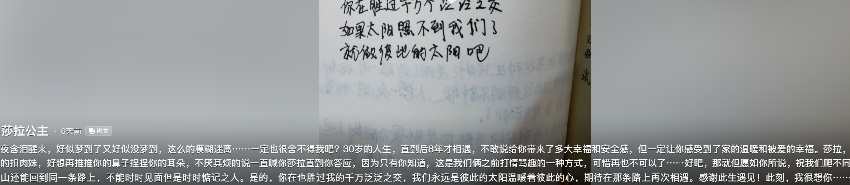 你在胜过千万个泛泛之交
如果太阳照不到我们了
就做彼此的太阳吧
莎拉公主 · 6天前
夜舍泪醒来，好似梦到了又好似没梦到，这么的模糊迷离……一定也很舍不得我吧？30岁的人生，直到后8年才相遇，不敢说给你带来了多大幸福和安全感，但一定让你感受到了家的温暖和被爱的幸福。莎拉，
的扣肉妹，好想再推推你的鼻子捏捏你的耳朵，不厌其烦的说一直喊你莎拉直到你答应，因为只有你知道，这是我们俩之前打情骂趣的一种方式，可惜再也不可以了……好吧，那就但愿如你所说，祝我们爬不同
山还能回到同一条路上，不能时时见面但是时时惦记之人。是的，你在也胜过我的千万泛泛之交，我们永远是彼此的太阳温暖着彼此的心，期待在那条路上再次相遇。感谢此生遇见！此刻，我很想你……